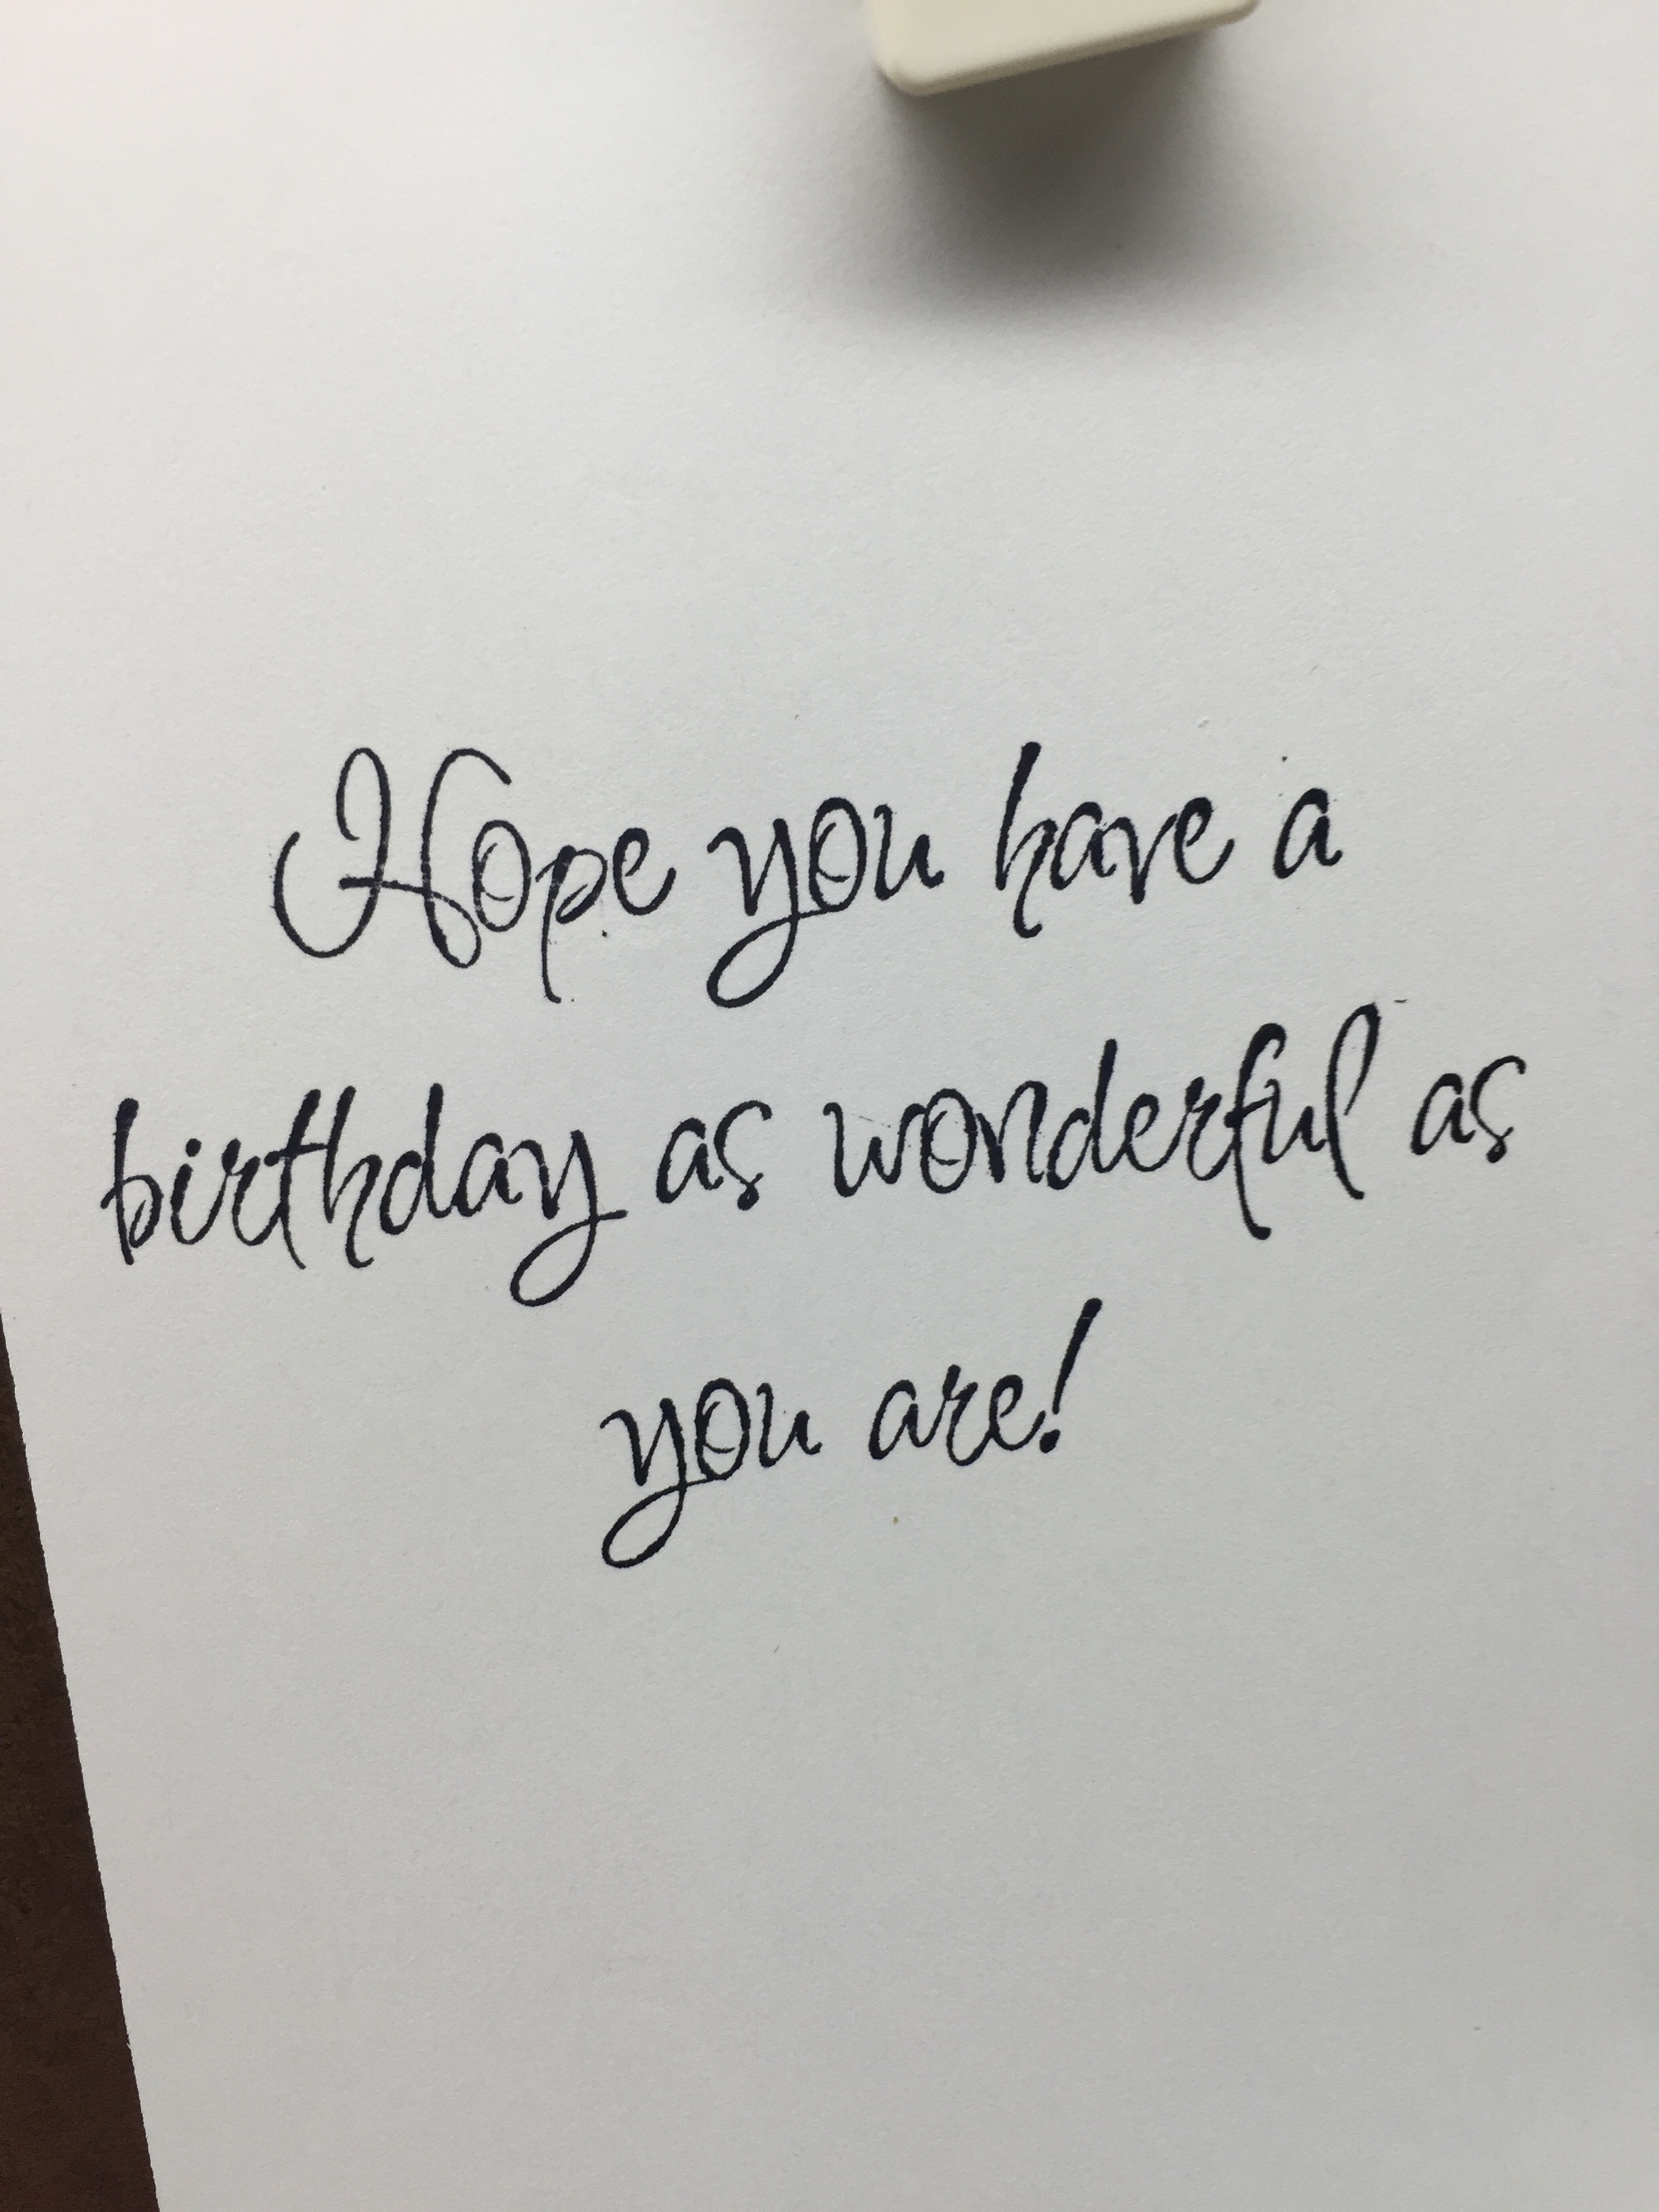 Hope you have a
birthday as wonderful as
you are!